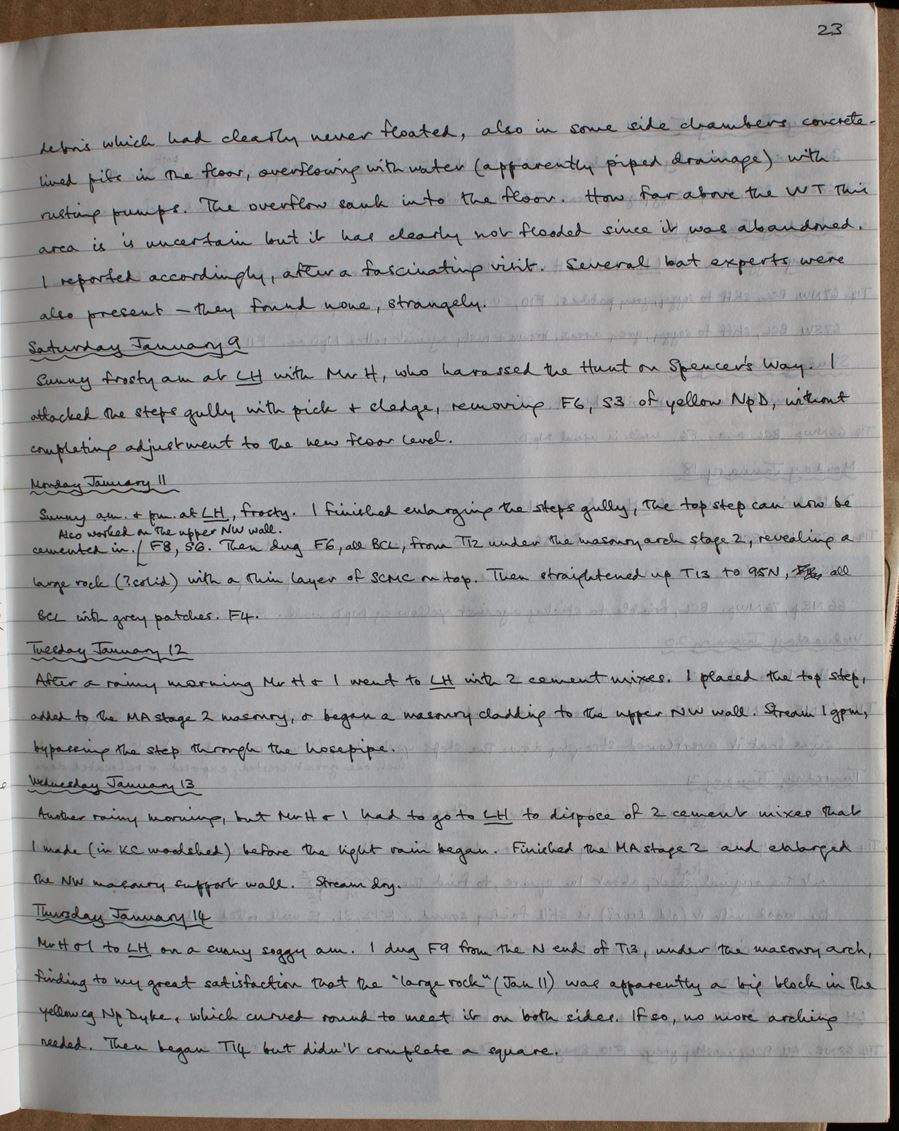 23
debris which had clearly never floated, also in some side chambers concrete-
lined pits in the floor, overflowing with water (apparently piped drainage) with
rusting pumps. The overflow sank into the floor. How far above the WT this
area is is uncertain but it has clearly not flooded since it was abandoned.
I reported accordingly, after a fascinating visit. Several bat experts were
also present – they found none, strangely.
Saturday January 9
Sunny frosty am at LH with Mr H, who harassed the Hunt on Spencer's Way. I
attacked the steps gully with pick + sledge, removing F6, S3 of yellow NpD, without
completing adjustment to the new floor level.
Monday January 11
Sunny am. + pm. at LH, frosty. I finished enlarging the steps gully, the top step can now be
Also worked on the upper NW wall.
cemented in. F8, S6. Then dug F6, all BCL, from T12 under the masonry arch stage 2, revealing a
large rock (?solid) with a thin layer of SCMC on top. Then straightened up T13 to 95N, all
BCL with grey patches. F4.
Tuesday January 12
After a rainy morning Mr H + I went to LH with 2 cement mixes. I placed the top step,
added to the MA stage 2 masonry, & began a masonry cladding to the upper NW wall. Stream 1 gpm,
bypassing the step through the hosepipe.
Wednesday January 13
Another rainy morning, but Mr H + I had to go to LH to dispose of 2 cement mixes that
I made (in KC woodshed) before the light rain began. Finished the MA stage 2 and enlarged
the NW masonry support wall. Stream dry.
Thursday January 14
Mr H + I to LH on a sunny soggy am. I dug F9 from the N end of T13, under the masonry arch,
finding to my great satisfaction that the "large rock" (Jan 11) was apparently a big block in the
yellow cg Np Dyke, which curved round to meet it on both sides. If so, no more arching
needed. Then began T14 but didn't complete a square.